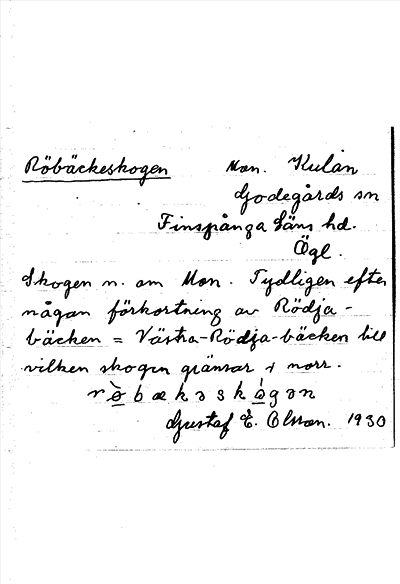 Röbäckeskogen Mon. Kulån
Godegårds sn
Finspånga läns hd.
Ögl.
Skogen n. om Mon. Tydligen efter
någon förkortning av Rödja-
bäcken = Västra-Rödja-bäcken till
vilken skogen gränsar i norr.
rø̀bækəskǿgən
Gustaf E. Olsson. 1930